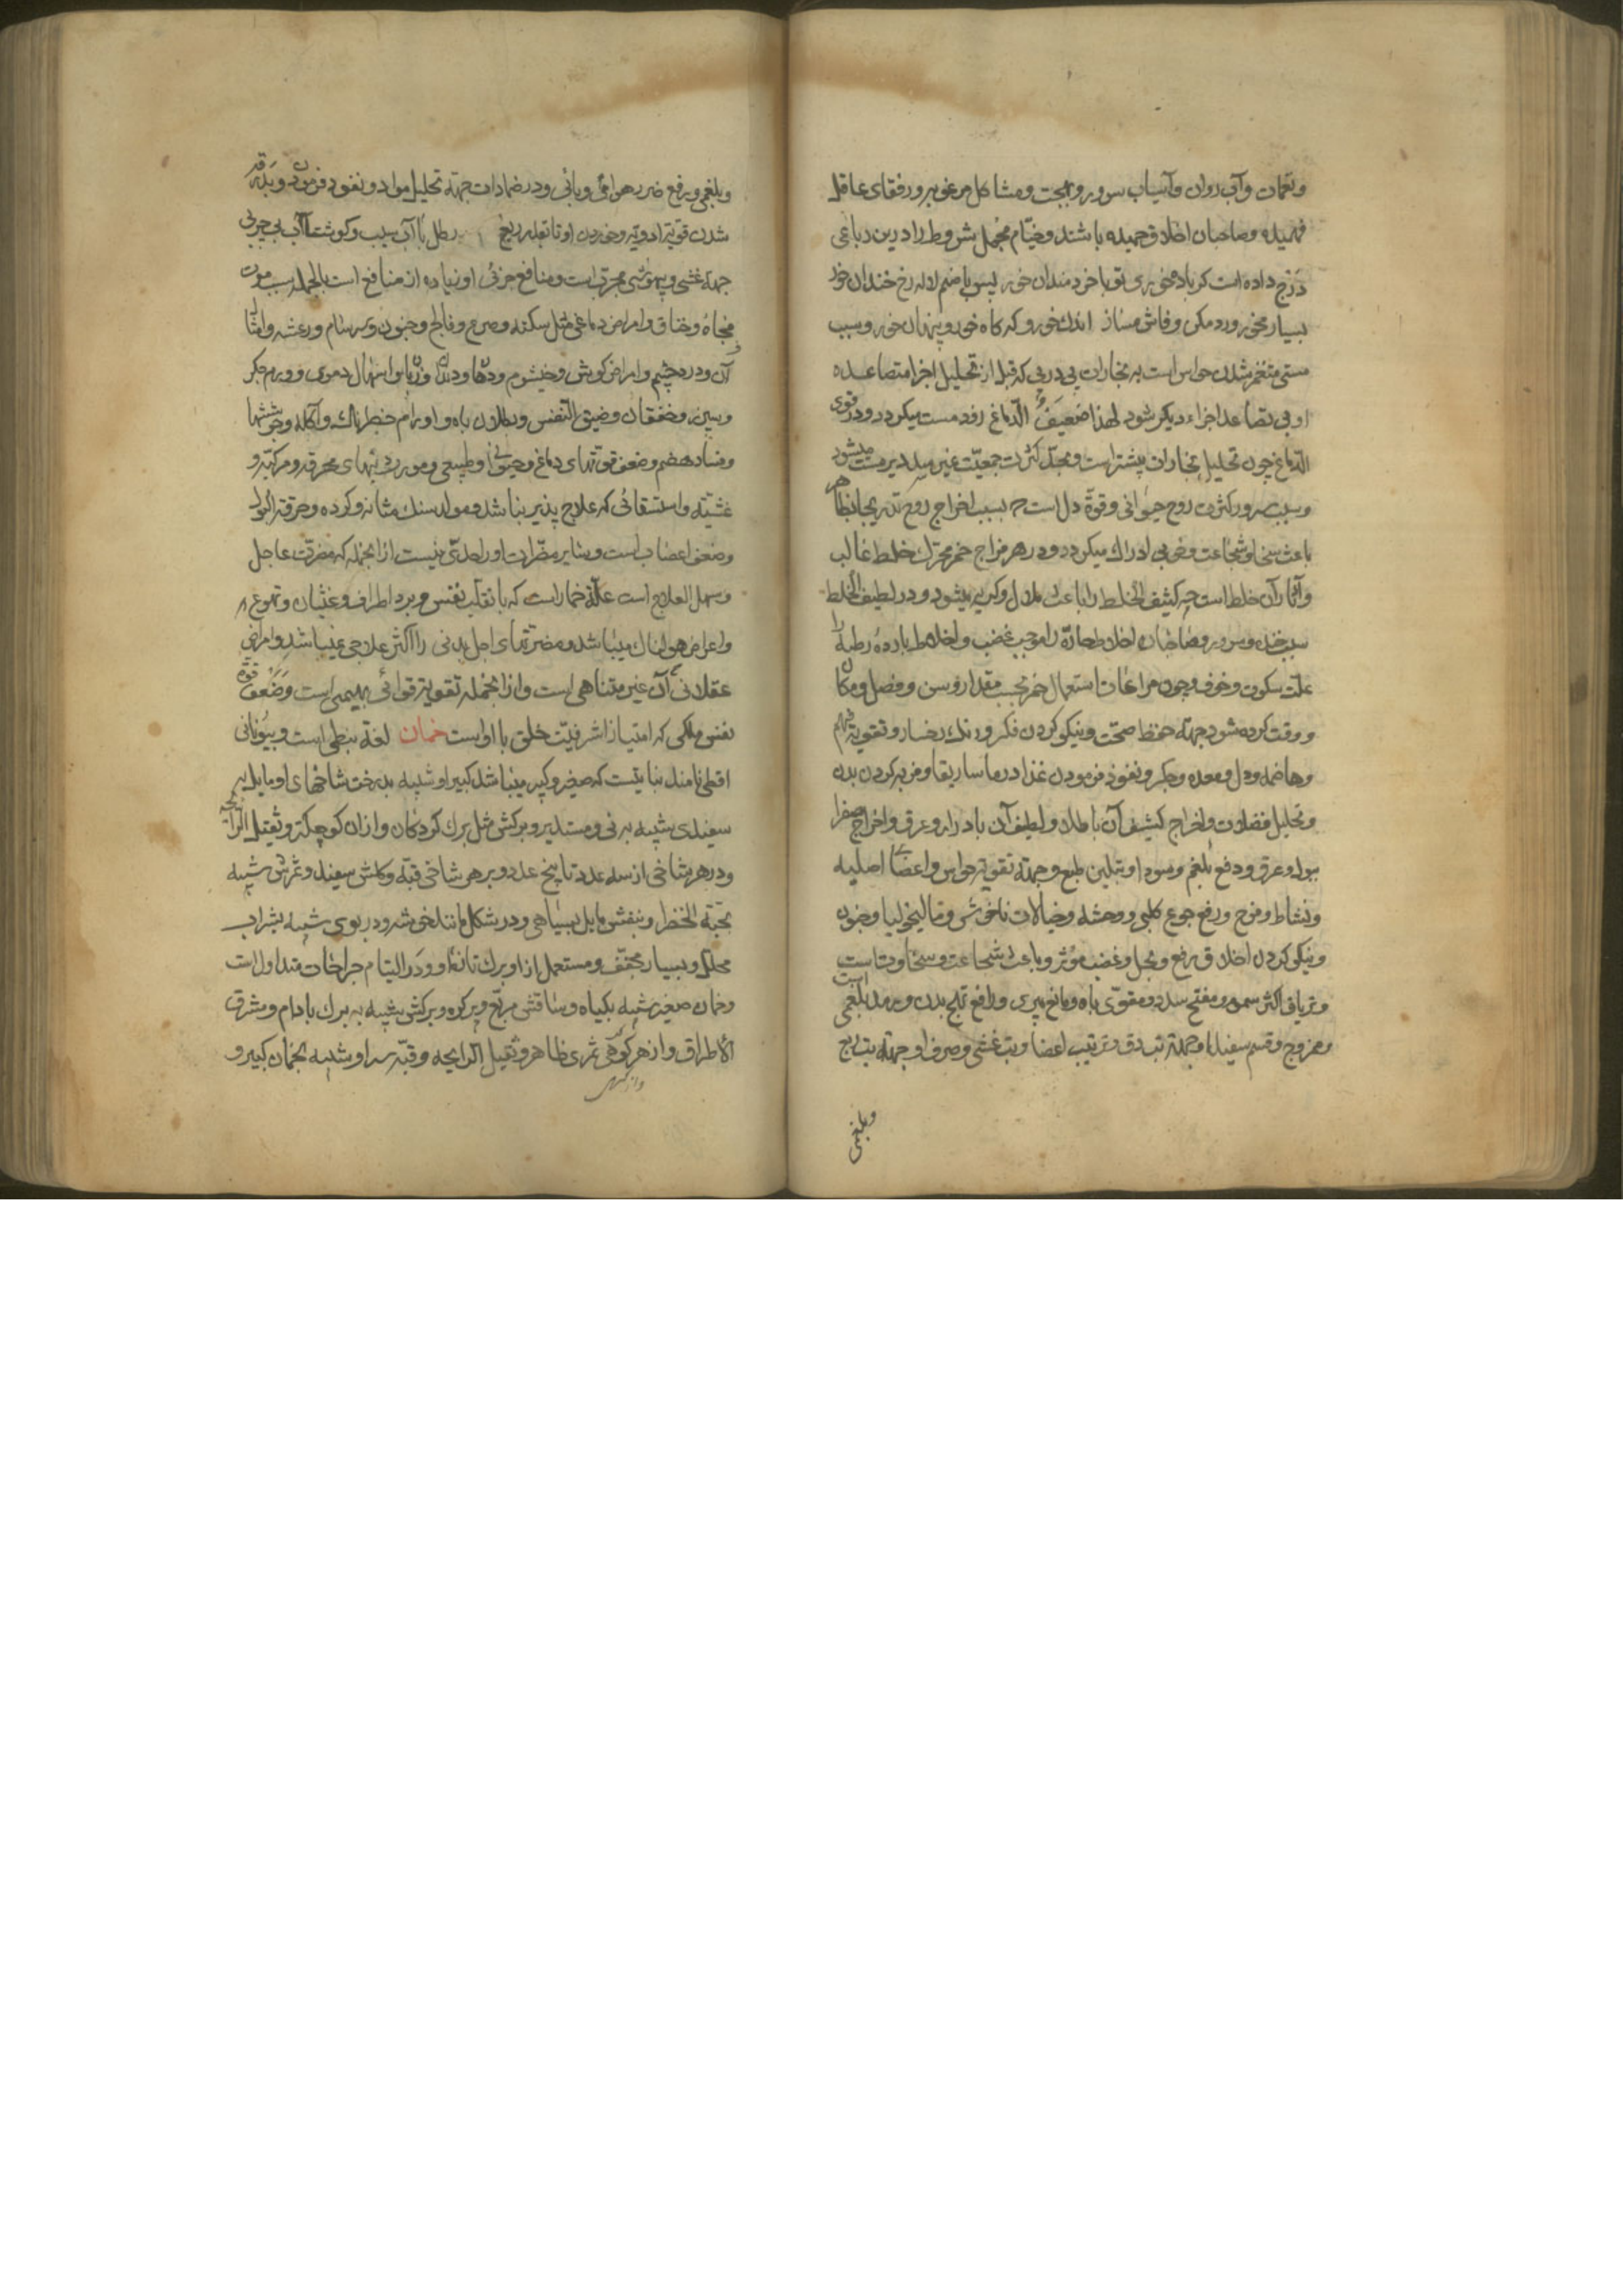 ونغمات وآب روان وآسیاب سرور وبهجت ومشاکل مرغوبه ورفقای عاقل
فهمیده وصاحبان اخلاق حمیده باشند وخیام مجمل شروط را درین رباعی
درج داده است کر باده خوری تو با خردمندان خور لیس با صنم لاله رخ خندان خور
بسیار مخور ورد مکن وفاش مساز اندک خور وکه کاه خور وپنهان خور وسبب
مستی متغمر شدن حواس است به بخارات پی در پی که قبل از تحلیل اجزا متصاعده
او پی تصاعد اجزاء دیکر شود لهذا ضعیف الدماغ زود مست میکردد ودر قوی
الدماغ چون تحلیل بخارات بیشتر است ومجدّ کثرت جمعیّت غیر میدد دیر مست میشود
وسبب سرور کثرت روح حیوانی وقوة دل است چه بسبب اخراج روح بتدریج بجانب ظاهر
باعث سخا وشجاعت وخوبی ادراک میکردد ودر هر مزاج خمر محرک خلط غالب
وآثار آن خلط است چه کثیف الخلط را باعث ملال وکریه میشود ودر لطیف الخلط
سبب خنده وسرور وصاحبان اخلاط حارّه را موجب غضب واخلاط بارده رطبه را
علّت سکوت وخوف وچون مراعات استعمال خمر بحسب مقدار وسن وفصل ومکان
ووقت کرده شود جهة حفظ صحّت ونیکو کردن فکر ورنک رخسار وتقویة فهم
وهاضمه ودل ومعده وجکر ونفوذ فرمودن غذا در ماساریقا وفربه کردن بدن
وتحلیل فضلات واخراج کثیف آن باطلاق ولطیف آن بادرار وعرق واخراج صفرا
ببول وعرق ودفع بلغم وسودا وبتلیین طبع وجهة تقویة حواس واعضاء اصلیه
ونشاط وفرح ورفع جوع کلبی ووحشه وخیالات ناخوش ومالیخولیا وجنون
ونیکو کردن اخلاق ورفع وبخل وغضب مؤثر وباعث شجاعت وسخاوت است
وتریاق اکثر سموم ومفتح سدد ومقوّی باه ومانع پیری ورافع تلج بدن وورمد بلغمی است
وممزوج وقسم سفید او جهة تب دق وترتیب اعضا وتب غشی وصرف او جهة تب ربع
وبلغمی
وبلغمی ورفع ضرر هوای وبائی ودر ضمادات جهة تحلیل مواد ونفوذ فرمودن وبدرقه
شدن قوّت ادویه وخوردن او تا بقدر ربع رطل با آب سیب وکوشتآب بی چربی
جهة غشی وبیهوشی مجرّب است ومنافع جزئی او زیاده از منافع است بالجمله سبب موت
فجاة وخناق وامراض دماغی مثل سکته وصرع وفالج وجنون وسرسام ورعشه وامثال
آن ودرد چشم وامراض کوش وخیشوم ودهان ودندان وزبان واسهال دموی وورم جکر
وسپرز وخفقان وضیق النفس وبطلان باه واورام خطرناک وآکله وجوششها
وفساد هضم وضعف قوتهای دماغ وحیوانی وطبیعی ومورث تبهای محرقه ومرکبه و
غشیّه واستسقائی که علاج پذیر نباشد ومولد سنک مثانه وکرده وحرقة البول
وضعف اعصاب است وسایر مضرّات او را حدّی نیست از انجمله که مضرّت عاجل
وسهل العلاج است علّة خمار است که با تقلّب نفس وبرد اطراف وغثیان وتهوع
واعراض هولناک میباشد ومضرّتهای اجل بدنی را اکثر علاجی نمیباشد وامراض
عقلانی آن غیر متناهی است واز انجمله تقویت قوائی بهیمی است وضعف قوّة
نفس ملکی که امتیاز اشرفیّت خلق با اوست خمان لغة نبطی است وبیونانی
اقطی نامند نباتیست که صغیر وکبیر میباشد کبیر او شبیه بدرخت شاخهای او مایل به
سفیدی شبیه به نی ومستدیر وبرکش مثل برک کردکان وازان کوچکتر وثقیل الرائحه
ودر هر شاخی از سه عدد تا پنج عدد وبر هر شاخی قبّه وکلش سفید وثمرش شبیه
بحبّة الخضرا وبنفش مایل بسیاهی ودر شکل مانند خوشه ودر بوی شبیه بشراب
محلّل وبسیار مجفّف ومستعمل از او برک تازه او ودر التیام جراحات متداول است
وخمان صغیر شبیه بکیاه وساقش مربّع وپر کره وبرکش شبیه به برک بادام ومشرف
الاطراف واز هر کرهی ثمری ظاهر وثقیل الرایحه وقبّه سر او شبیه بخمان کبیر و